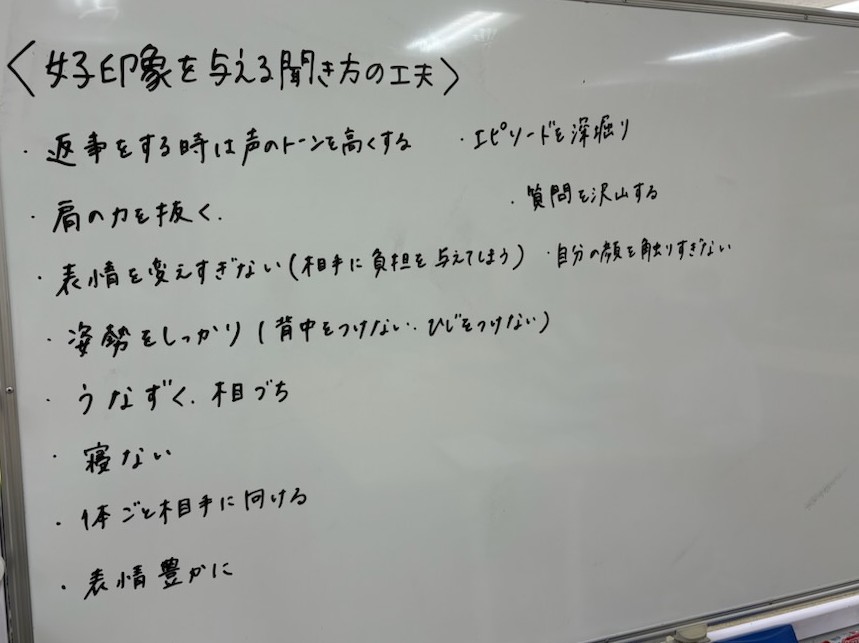 〈好印象を与える聞き方の工夫〉
・返事をする時は声のトーンを高くする
・エピソードを深堀り
・肩の力を抜く.
・質問を沢山する
・表情を変えすぎない(相手に負担を与えてしまう)
・自分の顔を触りすぎない
・姿勢をしっかり(背中をつけない.ひじをつけない)
・うなずく.相づち
・寝ない
・体ごと相手に向ける
・表情豊かに